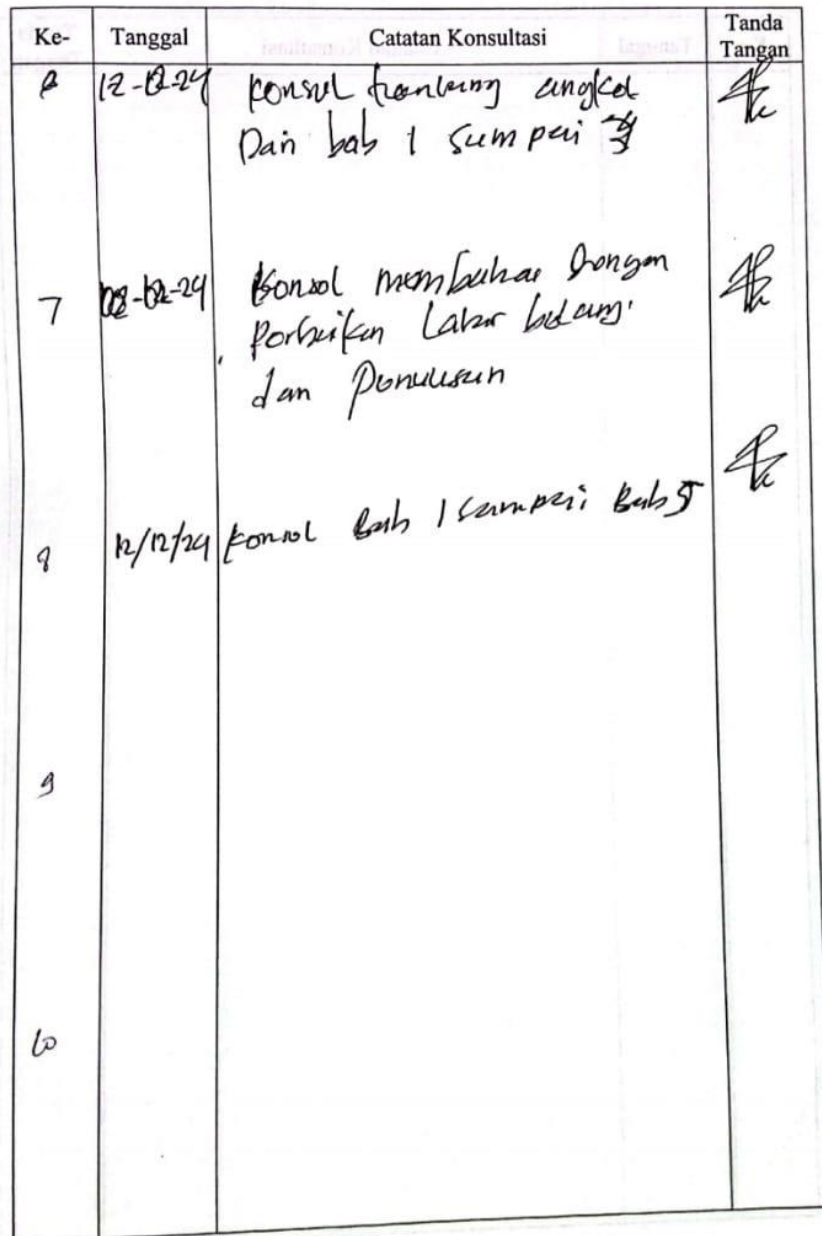 Ke- Tanggal Catatan Konsultasi Tanda Tangan
12-12-24 Konsul tentang angket
Dari bab 1 sampai
7 Konsul membahas Dengan
Perbaikan Latar belang
dan Penulisan
8 12/12/24 Konsol Bab 1 sampai Bab 5
9
10